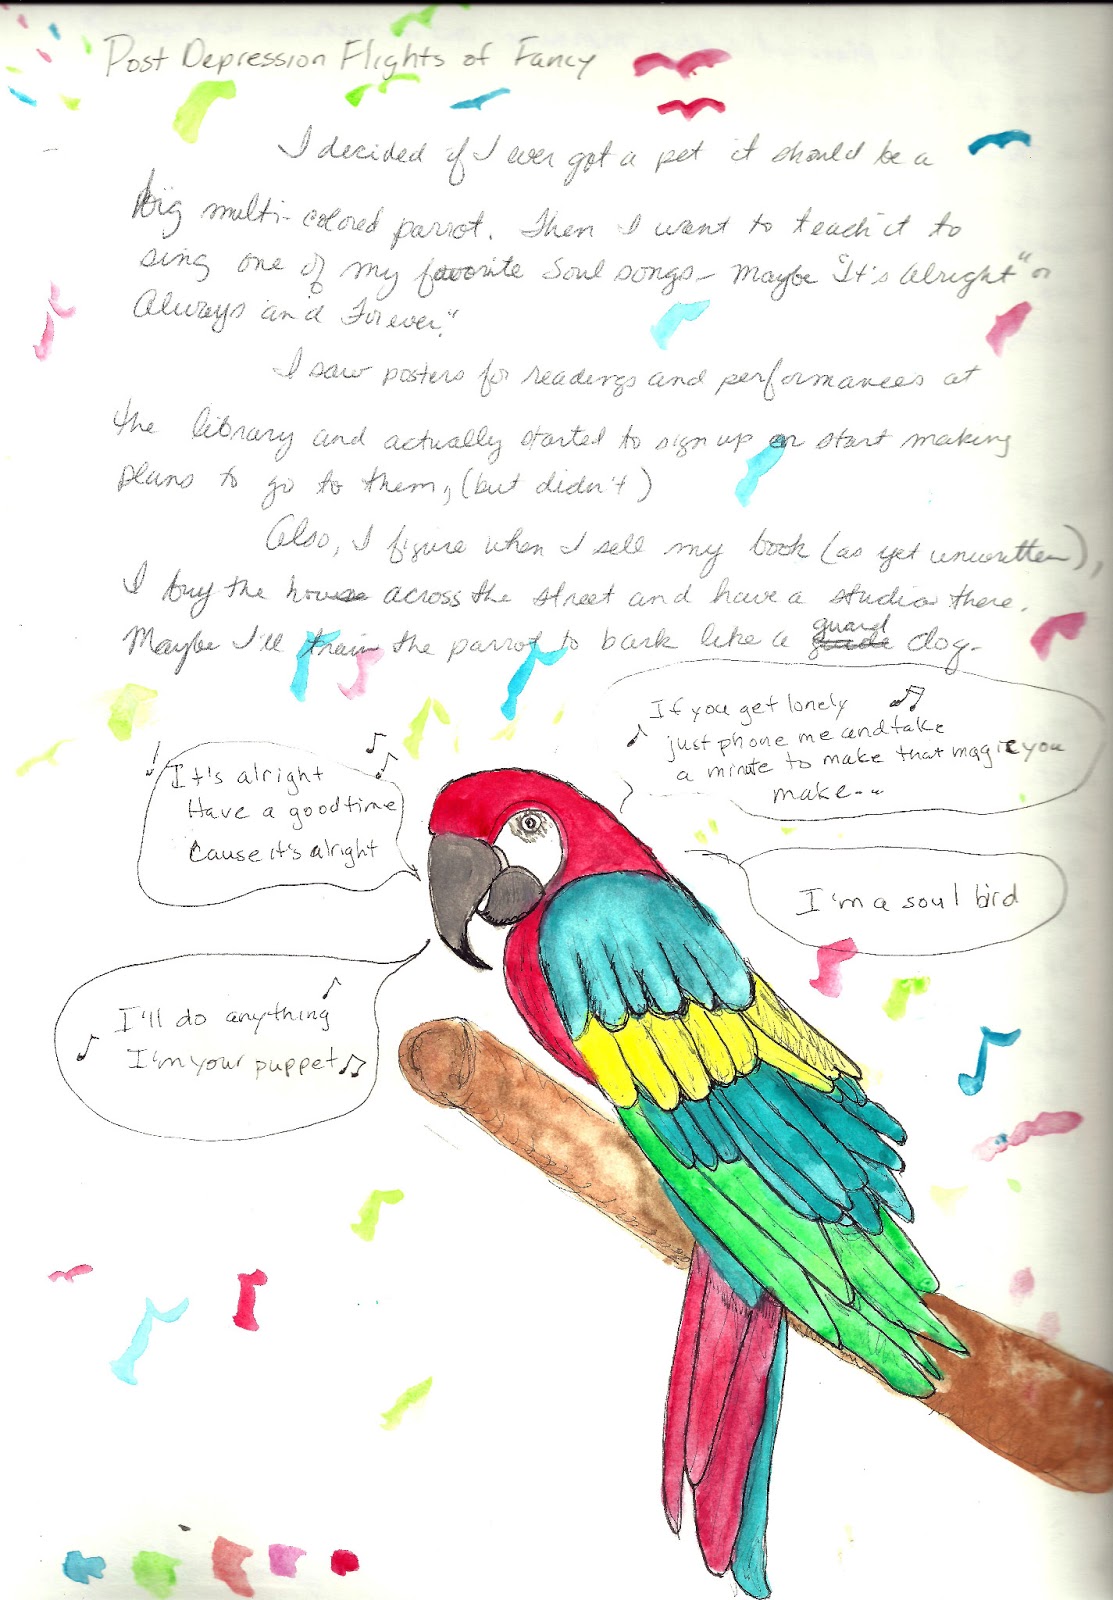 Post Depression Flights of Fancy
I decided if I ever got a pet it should be a
big multi-colored parrot. Then I want to teach it to
sing one of my favorite Soul songs - Maybe "It's Alright" or
Always and Forever."
I saw posters for readings and performances at
the library and actually started to sign up or start making
plans to go to them, (but didn't)
Also, I figure when I sell my book (as yet unwritten),
I buy the house across the street and have a studio there.
Maybe I'll train the parrot to bark like a guard dog.
If you get lonely
just phone me and take
a minute to make that magic you
make--
It's alright
Have a good time
Cause it's alright
I'm a soul bird
I'll do anything
I'm your puppet